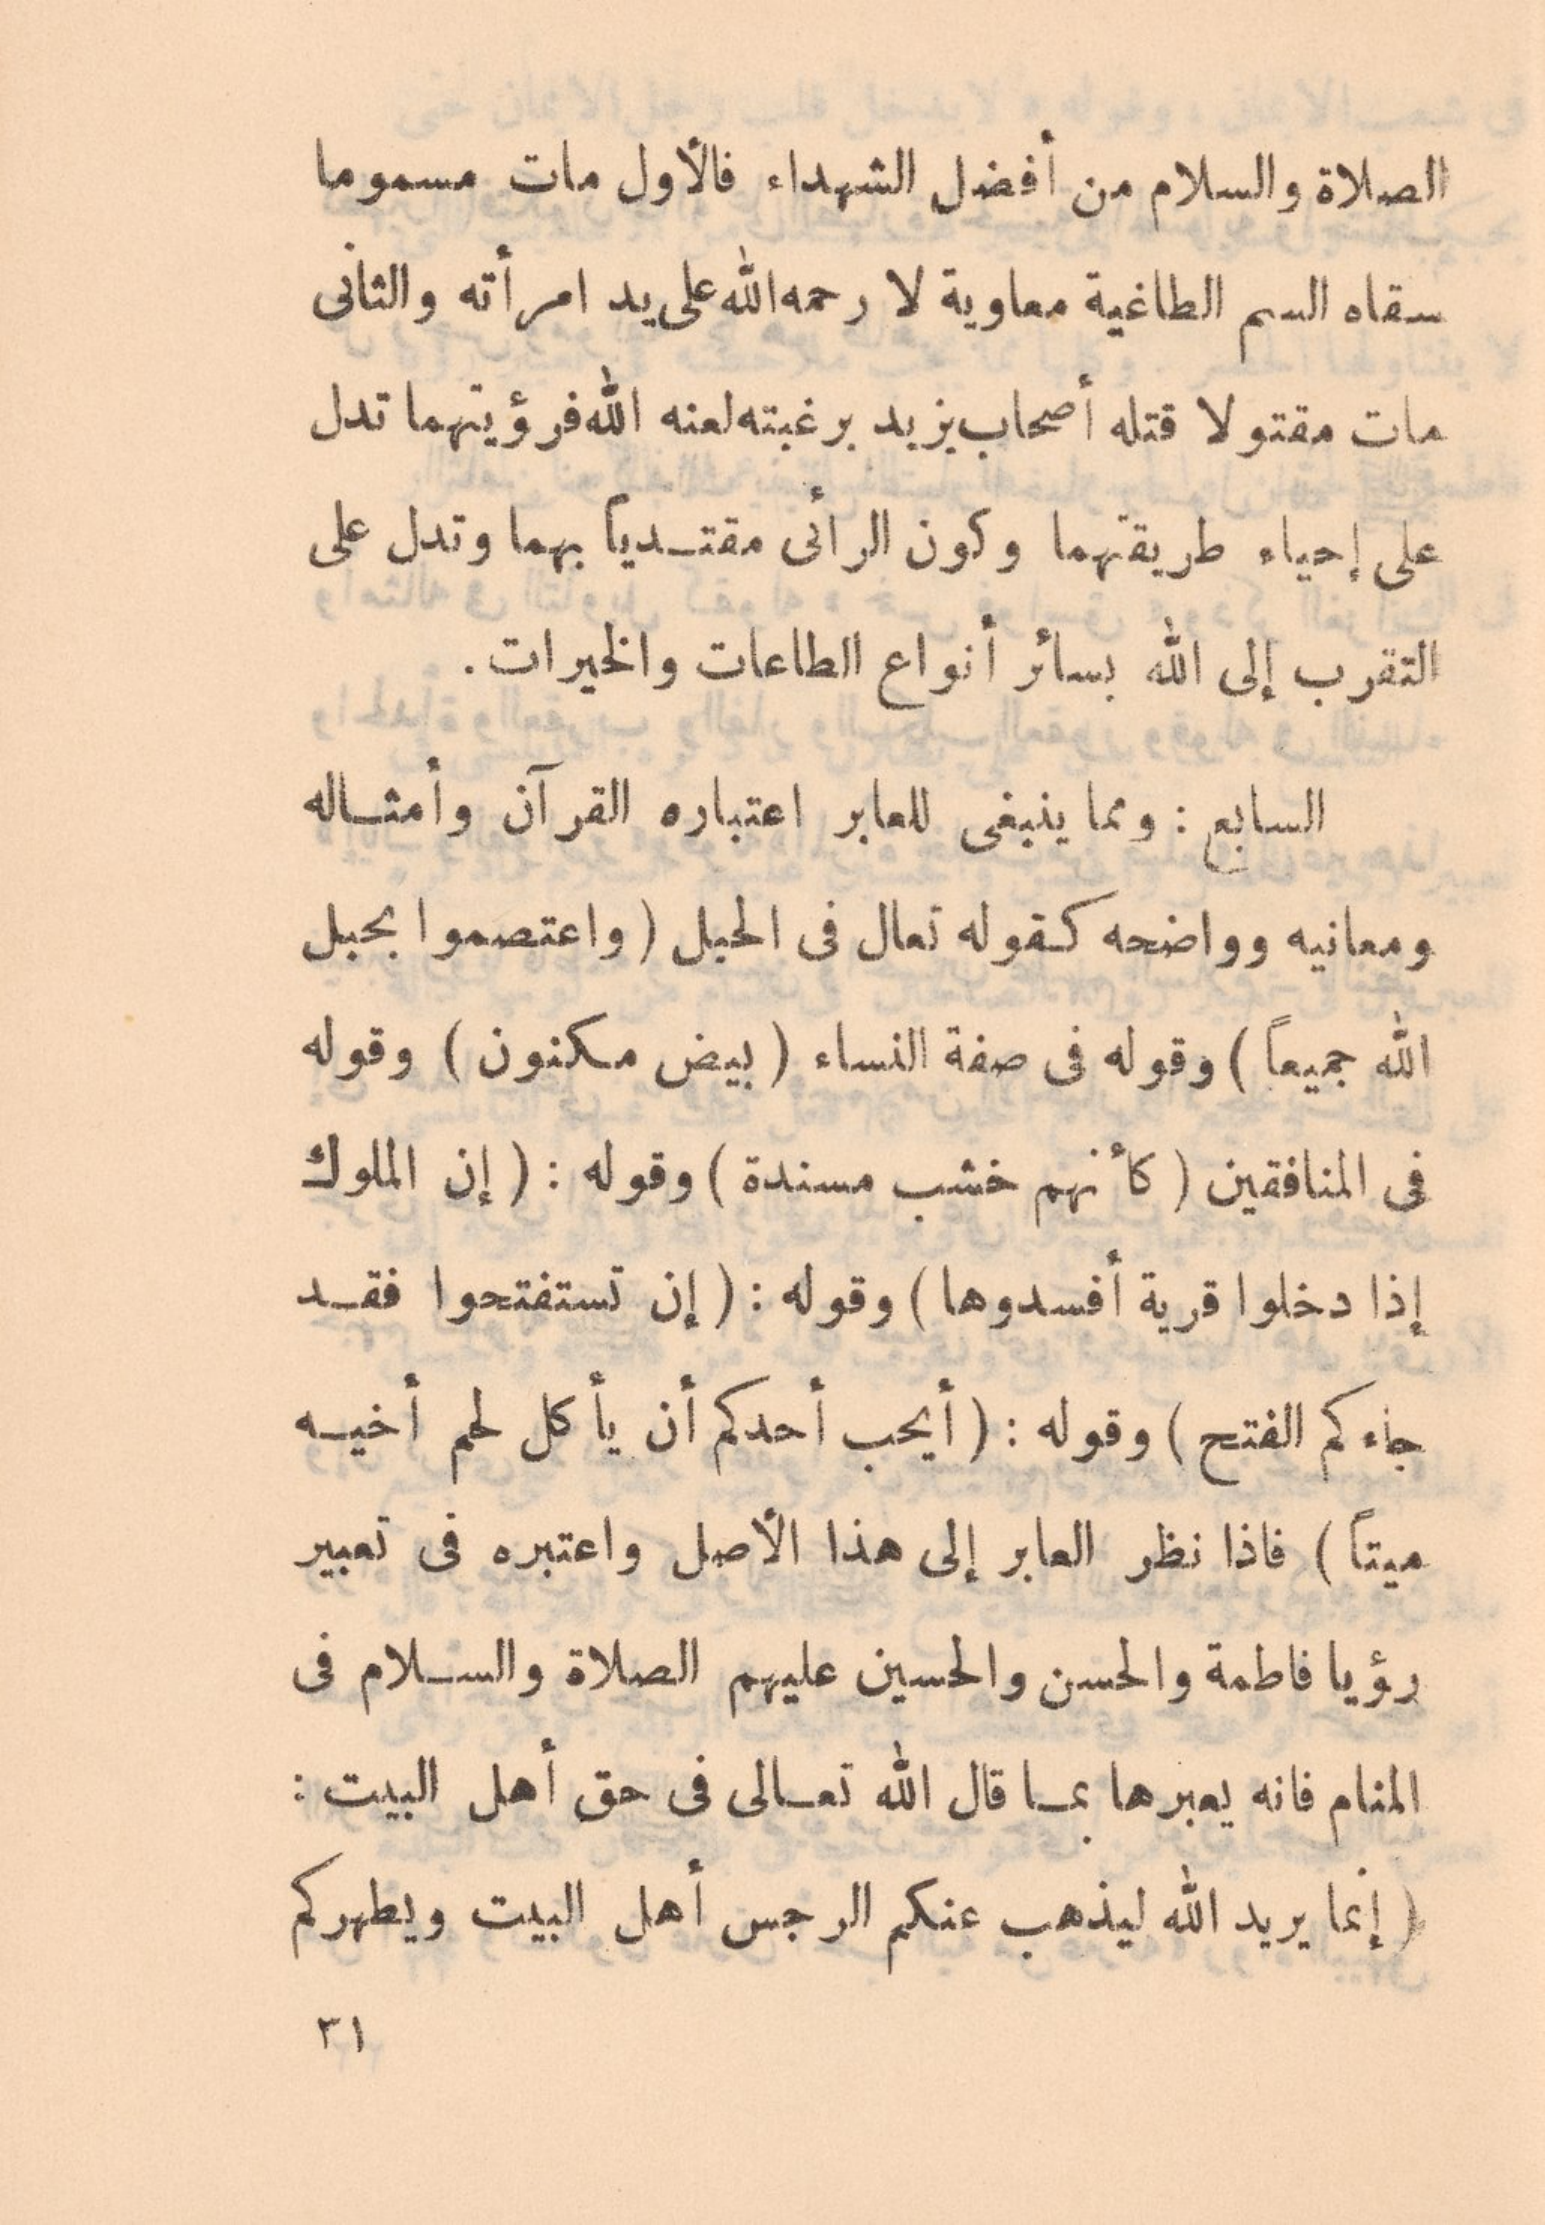 الصلاة والسلام من أفضل الشهداء فالأول مات مسموما
سقاه السم الطاغية معاوية لا رحمه الله على يد امرأته والثانى
مات مقتولا قتله أصحاب يزيد برغبته لعنه الله فرؤيتهما تدل
على إحياء طريقتهما وكون الرأئى مقتدياً بهما وتدل على
التقرب إلى الله بسائر أنواع الطاعات والخيرات .
السابع : ومما ينبغى للعابر اعتباره القرآن وأمثاله
ومعانيه وواضحه كقوله تعال فى الحبل ( واعتصموا بحبل
الله جميعاً ) وقوله فى صفة النساء ( بيض مكنون ) وقوله
فى المنافقين ( كأنهم خشب مسندة ) وقوله : ( إن الملوك
إذا دخلوا قرية أفسدوها ) وقوله : ( إن تستفتحوا فقد
جاءكم الفتح ) وقوله : ( أيحب أحدكم أن يأكل لحم أخيه
ميتاً ) فاذا نظر العابر إلى هذا الأصل واعتبره فى تعبير
رؤيا فاطمة والحسن والحسين عليهم الصلاة والسلام فى
المنام فانه يعبرها بما قال الله تعالى فى حق أهل البيت :
( إنما يريد الله ليذهب عنكم الرجس أهل البيت ويطهركم
٣١